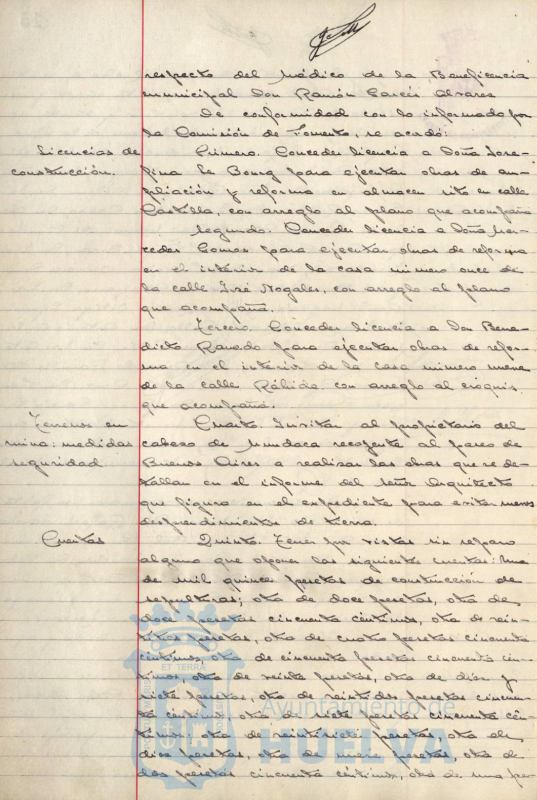 respecto del Médico de la Beneficencia
municipal Don Ramón García Alvarez
De conformidad con lo informado por
la Comisión de Fomento, se acordó:
Licencias de
construcción.
Primero. Conceder licencia a Doña Jose-
fina Le Bourg para ejecutar obras de am-
pliación y reforma en almacen sito en calle
Castilla, con arreglo al plano que acompaña
Segundo. Conceder licencia a Doña Mer-
cedes Gomez para ejecutar obras de reforma
en el interior de la casa número once de
la calle José Nogales, con arreglo al plano
que acompaña.
Tercero. Conceder licencia a Don Bene-
dicto para ejecutar obras de refor-
ma en el interior de la casa número nueve
de la calle Rábida, con arreglo al cróquis
que acompaña.
Terrenos en
ruina: medidas
seguridad
Cuarto. Invitar al propietario del
cabezo de Mundaca recayente al paseo de
Buenos Aires a realizar las obras que se de-
tallan en el informe del señor Arquitecto
que figura en el expediente para evitar nuevos
desprendimientos de tierra.
Cuentas
Quinto. Tener por vistas sin reparo
alguno que oponer las siguientes cuentas: Una
de mil quince pesetas de construcción de
sepulturas; otra de doce pesetas, otra de
doce pesetas cincuenta céntimos, otra de vein-
pesetas, otra de cuatro pesetas cincuenta
céntimos, otra de cincuenta pesetas cincuenta cén-
timos, otra de veinte pesetas, otra de diez y
siete pesetas, otra de veintidos pesetas cincuen-
ta céntimos, otra de siete pesetas cincuenta cén-
timos, otra de veintisiete pesetas, otra de
diez pesetas, otra de nueve pesetas, otra de
dos pesetas cincuenta céntimos, otra de una pe-
ET TERRA
Ayuntamiento de
HUELVA